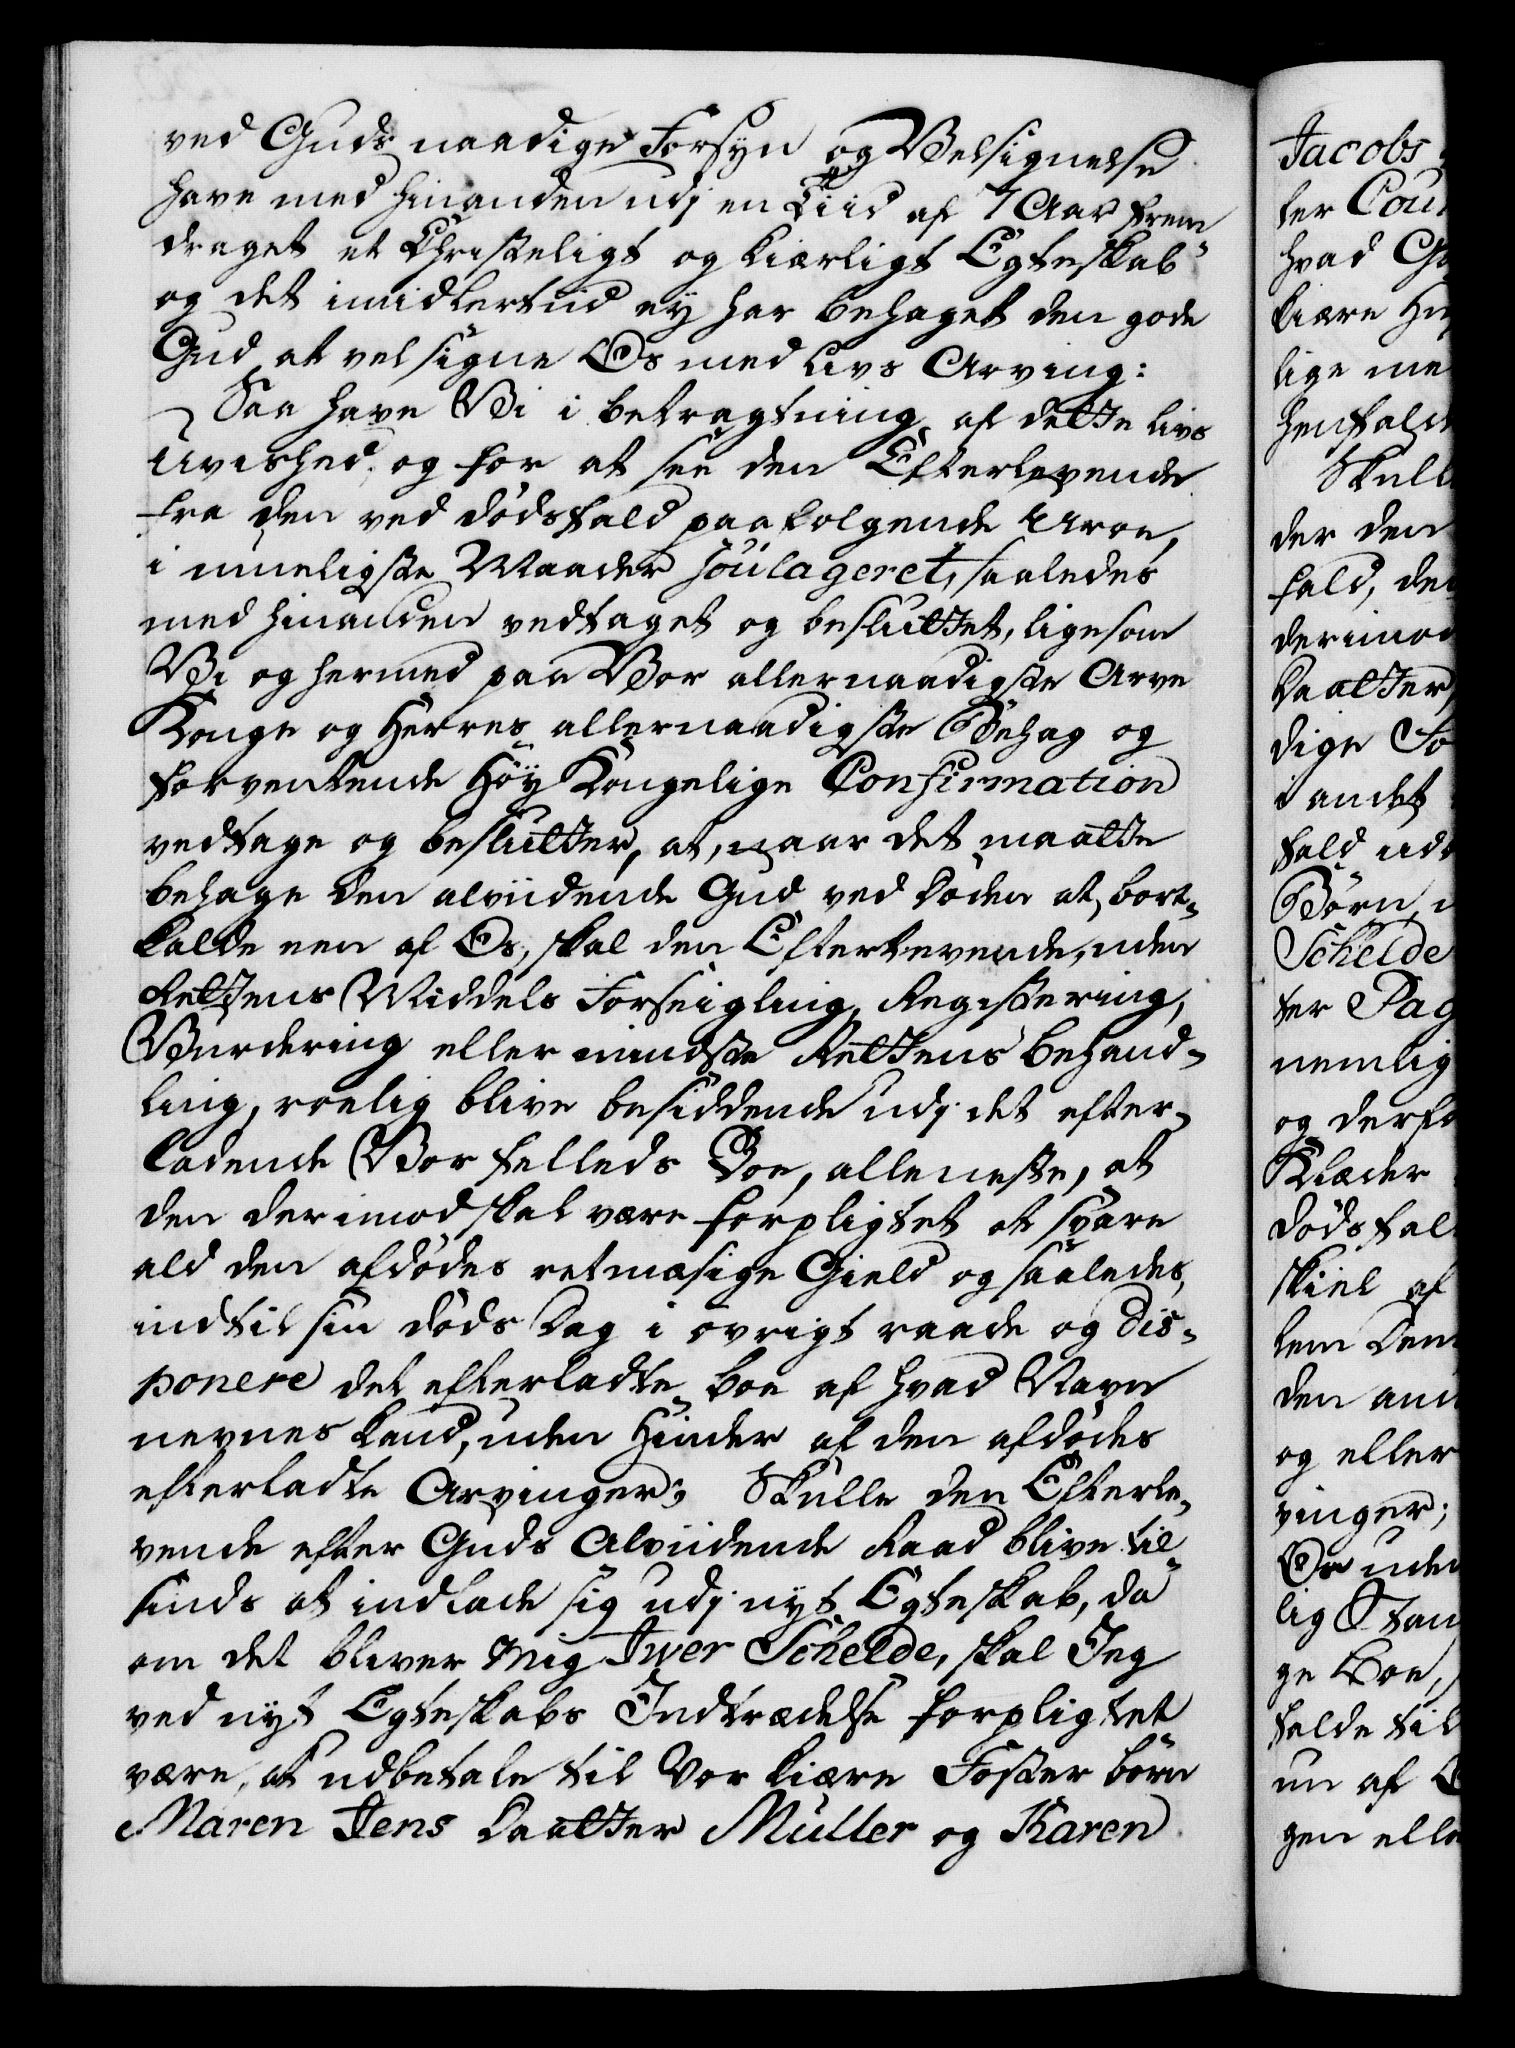 ved Guds naadige Forsyn og Velsignelse
have med hinanden udj en Tiid af 7 Aar frem
draget et Christeligt og kiærligt Egteskab
og det imidlertiid ey har behaget den gode
Gud at velsigne Os med Livs Arving:
Saa have Vi i betragtning af dette livs
Uvished, og for at see den Efterlevende
fra den ved dödsfald paafölgende Uroe,
i mueligste Maader soulageret, saaledes
med hinanden vedtaget og besluttet, ligesom
Vi og hermed paa Vor allernaadigste Arve
Konge og Herres allernaadigste Behag og
forventende Höy Kongelige Confirmation
vedtage og beslutter, at, naar det maatte
behage den alviidende Gud ved döden at bort-
kalde een af Os, skal den Efterlevende, uden
Rettens Middels Forseigling, Registering,
Vurdering eller mindste Rettens behand-
ling, roelig blive besiddende udj det efter-
ladende Vor felleds Boe, alleneste, at
den derimod skal være forpligtet at svare
ald den afdödes retmæsige Gield og saaledes,
indtil sin döds Dag i övrigt raade og dis-
ponere det efterladte boe af hvad Navn
nevnes kand, uden Hinder af den afdödes
efterladte Arvinger; Skulle den Efterle-
vende efter Guds Alviidende Raad blive til
sinds at indlade sig udj nyt Egteskab, da
om det bliver Mig Iver Schelde, skal Jeg
ved nyt Egteskabs Indtrædelse forpligtet
være, at udbetale til Vor kiære Foster börn
Maren Jens Daatter Müller og Karen
Jacobs
ter Cou
hvad G
kiære H
lige me
henfald
Skull
der den
fald, de
derimod
Daatter
dige Fo
i andet
fald ude
Börn
Schelde
ter Pag
nemlig
og derfo
Klæder
Dödsfal
skiel af
lem Den
den and
og eller
vinger;
Os uden
lig Stan
ge Boe,
falde til
un af
gen elle